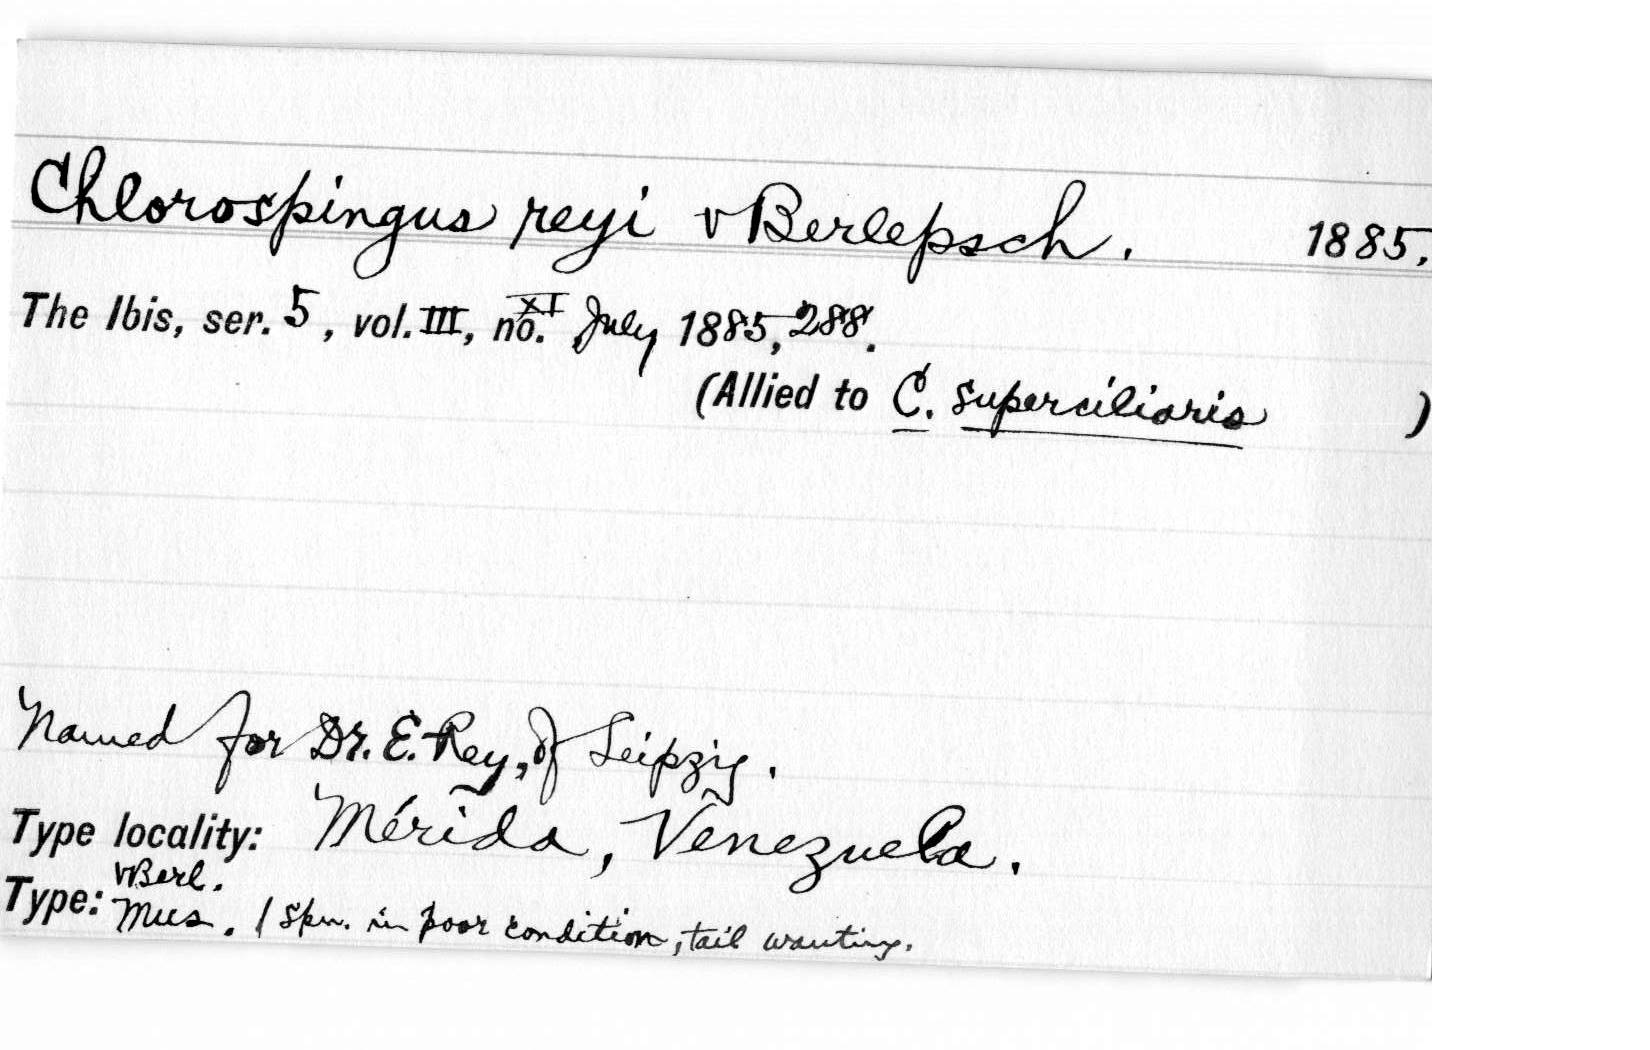 Chlorospingus reyi vBerlepsch. 1885.
The Ibis, ser. 5, vol. III, no. XI July 1885, 288.
(Allied to C. superciliaris )
Named for Dr. E. Rey, of Leipzig.
Type locality: Mérida, Venezuela.
Type: vBerl. Mus. 1 spn. in poor condition, tail wanting.